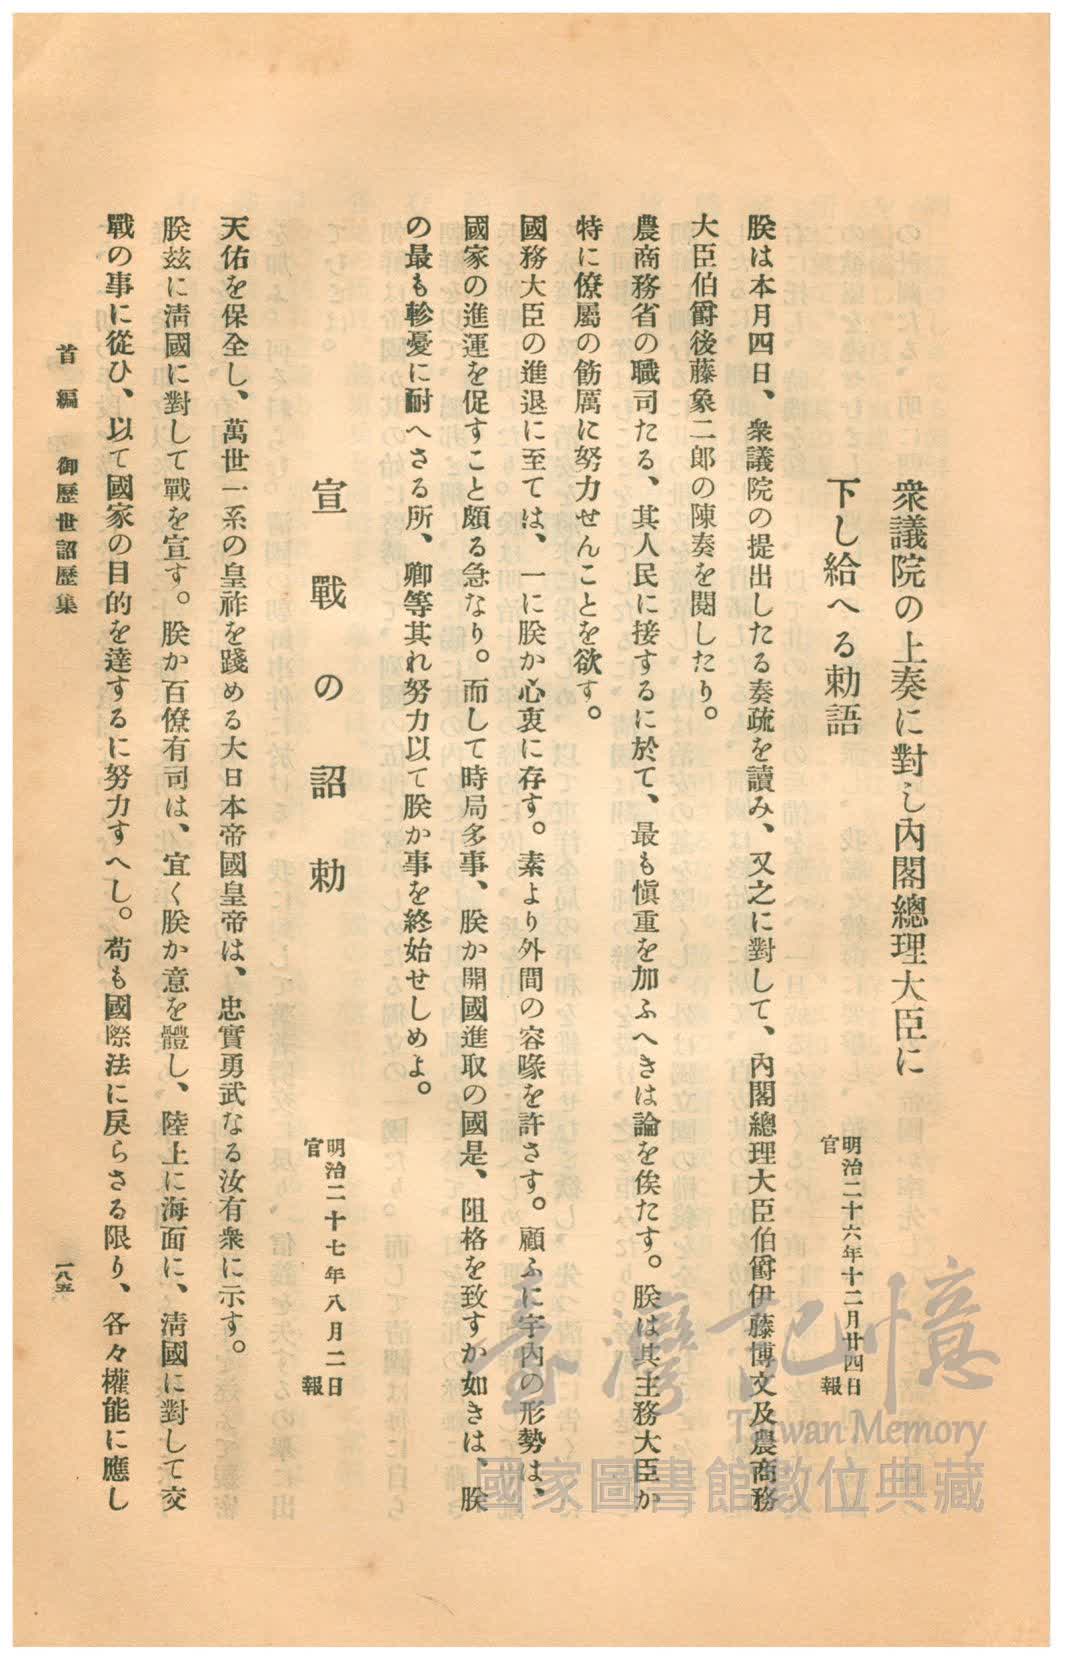 衆議院の上奏に對し內閣總理大臣に
下し給へる勅語
明治二十六年十二月廿四日
官報
朕は本月四日、衆議院の提出したる奏疏を讀み、又之に對して、內閣總理大臣伯爵伊藤博文及農商務
大臣伯爵後藤象二郎の陳奏を閱したり。
農商務省の職司たる、其人民に接するに於て、最も愼重を加ふへきは論を俟たす。朕は其主務大臣か
特に僚屬の飭厲に努力せんことを欲す。
國務大臣の進退に至ては、一に朕か心衷に存す。素より外間の容喙を許さす。顧ふに宇內の形勢は、
國家の進運を促すこと頗る急なり。而して時局多事、朕か開國進取の國是、阻格を致すか如きは、朕
の最も軫憂に耐へさる所、卿等其れ努力以て朕か事を終始せしめよ。
宣戰の詔勅
明治二十七年八月二日
官報
天佑を保全し、萬世一系の皇祚を踐める大日本帝國皇帝は、忠實勇武なる汝有衆に示す。
朕玆に淸國に對して戰を宣す。朕か百僚有司は、宜く朕か意を體し、陸上に海面に、淸國に對して交
戰の事に從ひ、以て國家の目的を達するに努力すへし。苟も國際法に戾らさる限り、各々權能に應し
首編 御歷世詔歷集
一八五
臺灣記憶
Taiwan Memory
國家圖書館數位典藏